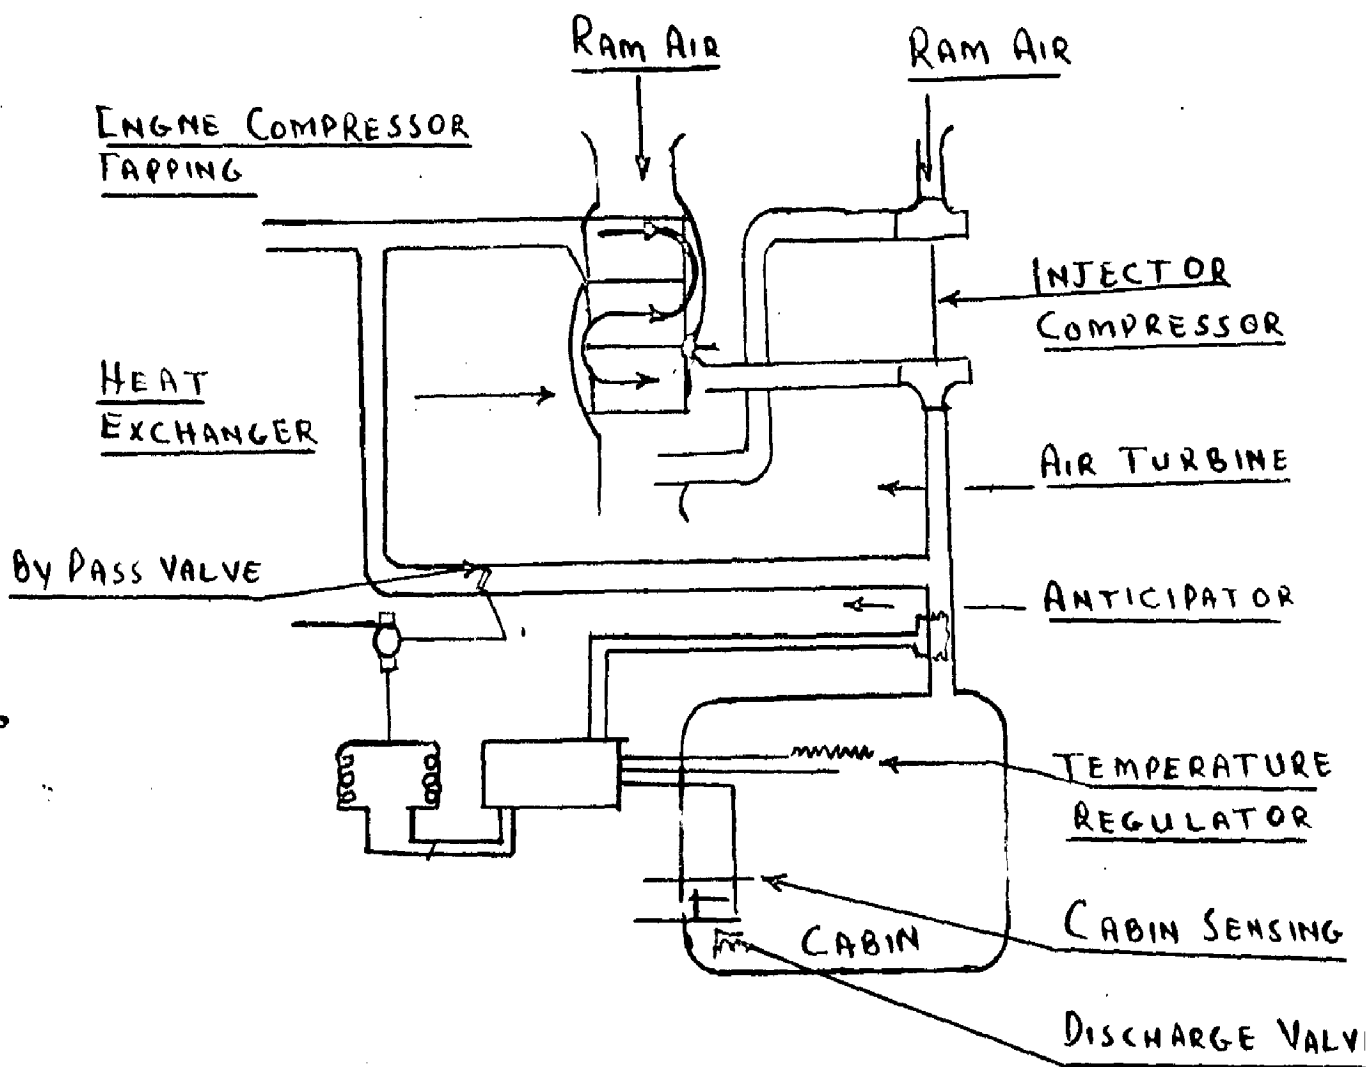 RAM AIR
RAM AIR
ENGNE COMPRESSOR
TAPPING
INJECTOR
COMPRESSOR
HEAT
EXCHANGER
AIR TURBINE
BY PASS VALVE
ANTICIPATOR
TEMPERATURE
REGULATOR
CABIN SENSING
CABIN
DISCHARGE VALV